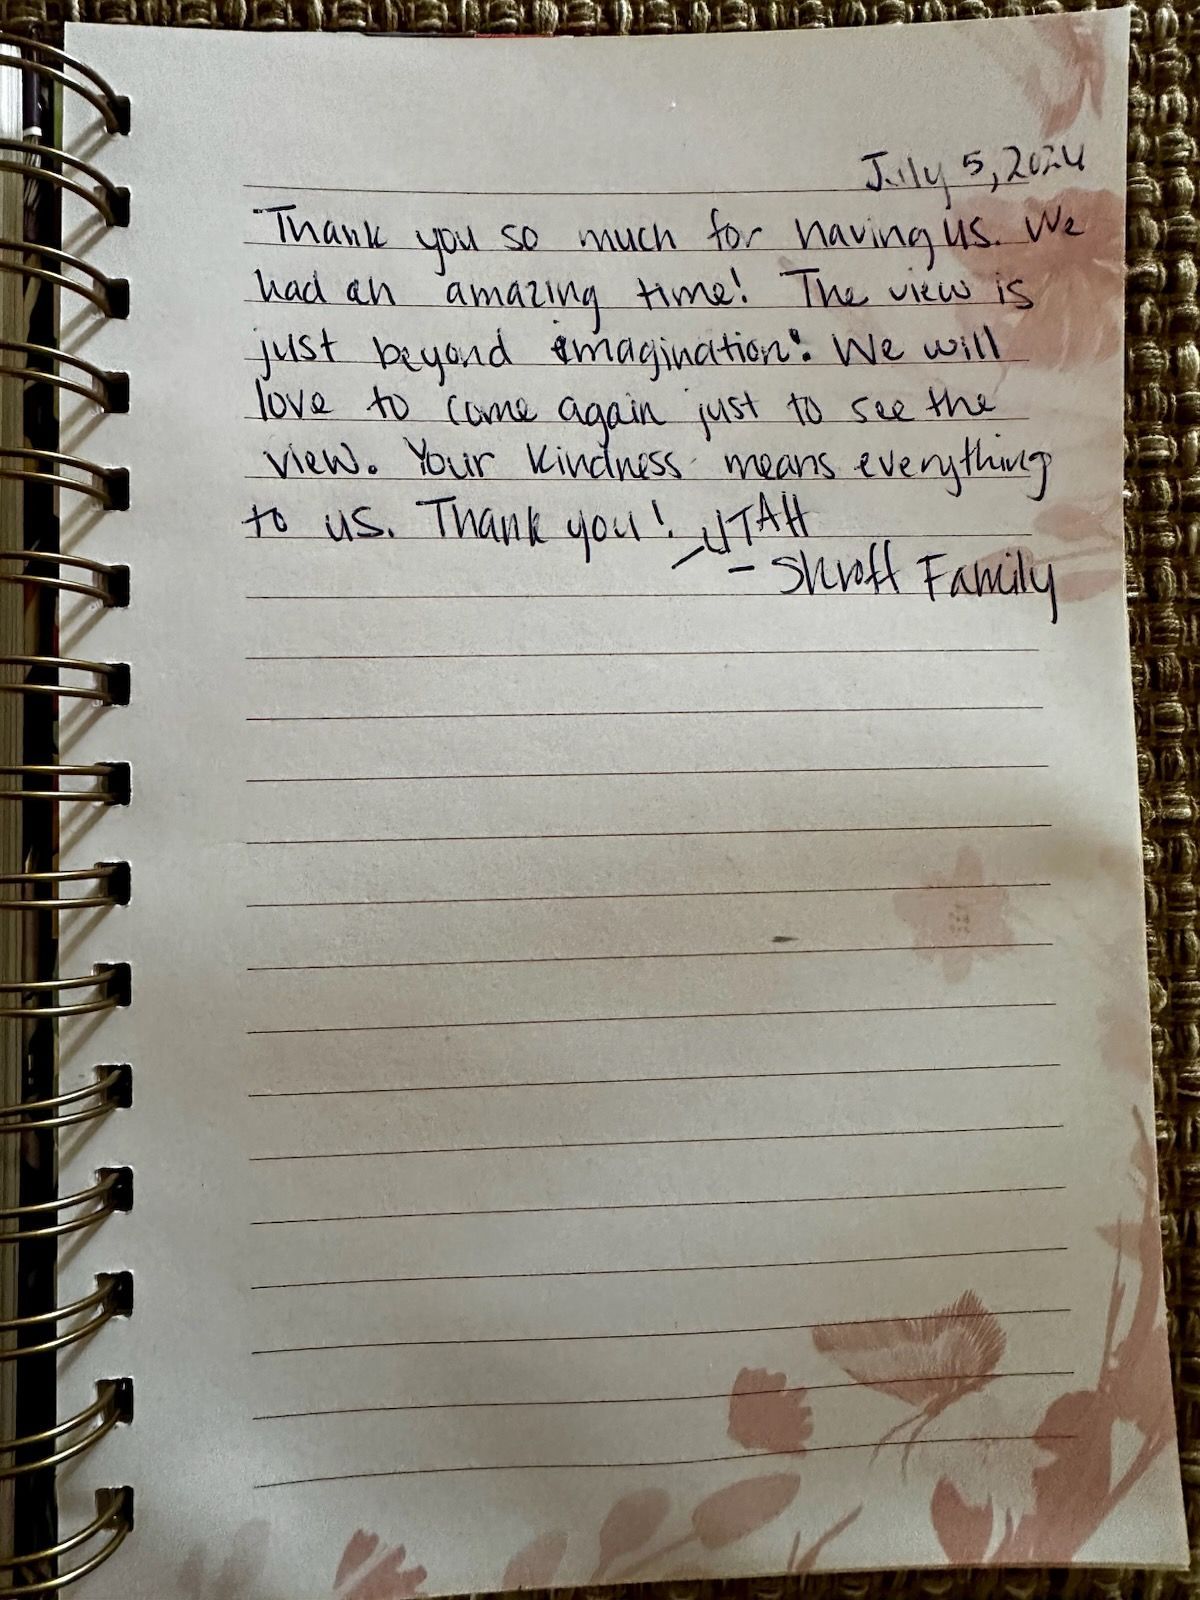 July 5, 2024
Thank you so much for having us. We
had an amazing time! The view is
just beyond imagination! We will
love to come again just to see the
view. Your kindness means everything
to us. Thank you!
- UTAH
- Shroff Family